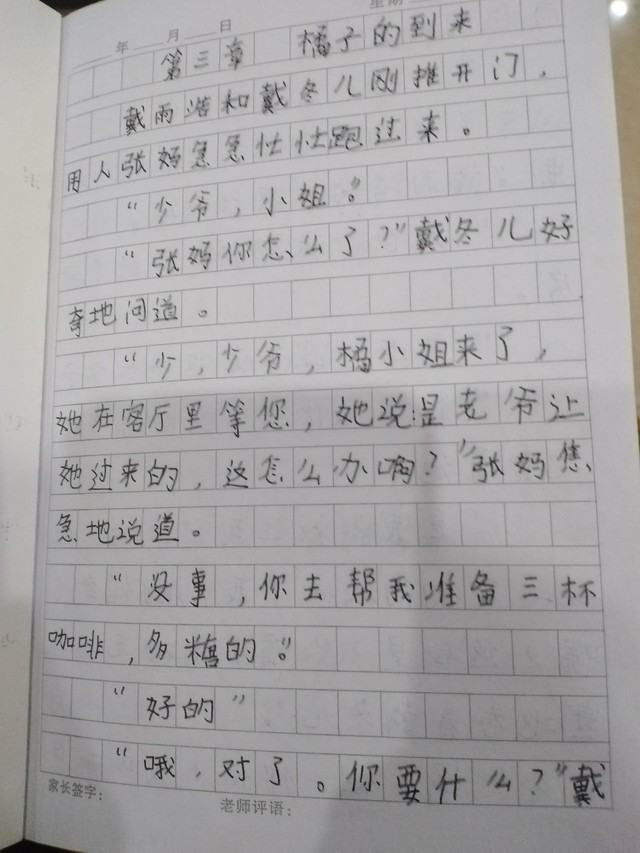 星期
年 月 日
第三章 橘子的到来
戴雨浩和戴冬儿刚推开门，
用人张妈急急忙忙跑过来。
“少爷，小姐。”
“张妈你怎么了？”戴冬儿好
奇地问道。
“少，少爷，橘小姐来了，
她在客厅里等您，她说是老爷让
她过来的，这怎么办啊？”张妈焦
急地说道。
“没事，你去帮我准备三杯
咖啡，多糖的。”
“好的”
“哦，对了。你要什么？”戴
家长签字：
老师评语：